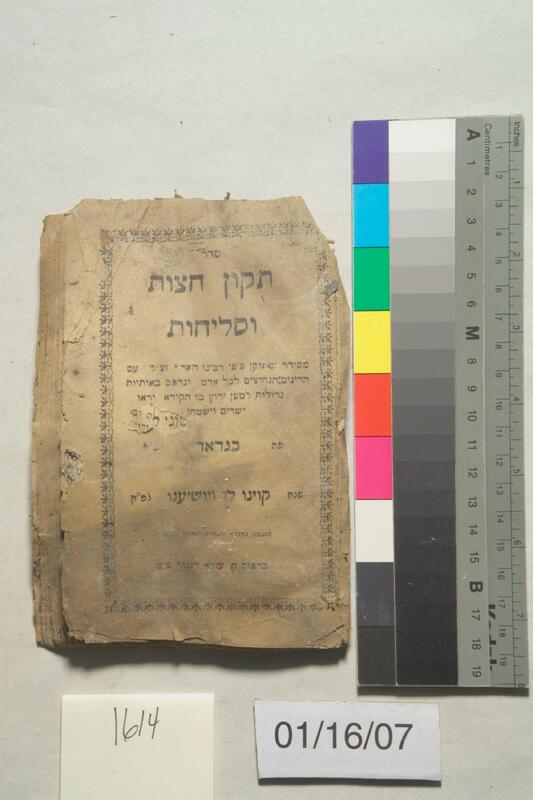 סדר
תקון חצות
וסליחות
מסודר ומתוקן ע״פי רבינו האר״י זצ״ל עם
הדינים הנחוצים לכל אדם ונדפס באותיות
גדולות למען ירוץ בו הקורא יראו
ישרים וישמחו
פה בגדאד יע״א
שנת קוינו לו ויושיענו לפ״ק
בדפוס עזרא דנגור
1614
01/16/07
Inches
Centimetres
1 2 3 4 5 6 7 8
A 1 2 3 4 5 6 M 8 9 10 11 12 13 14 15 B 17 18 19
Kodak